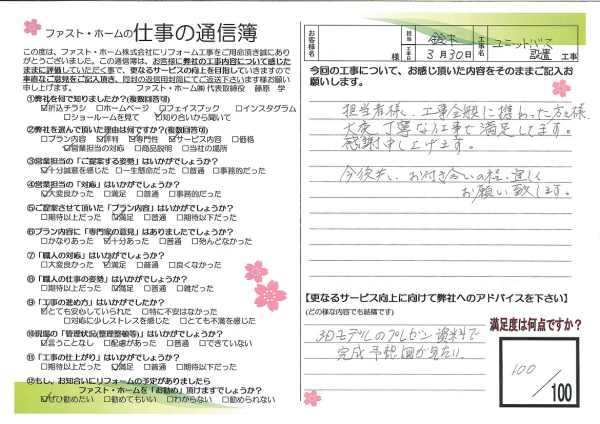 ファスト・ホームの仕事の通信簿
この度は、ファスト・ホーム株式会社にリフォーム工事をご用命頂き誠にあり
がとうございました。この通信簿は、お客様に弊社の工事内容について感じた
ままに評価していただく事で、更なるサービスの向上を目指していきますので
率直なご意見をご記入頂き、同封の返信用封筒にてご返送下さいます様お願い
申し上げます。 ファスト・ホーム㈱ 代表取締役 藤原 学
①弊社を何で知りましたか?(複数回答可)
☑折込チラシ □ホームページ □フェイスブック □インスタグラム
□ショールームを見て ☑知り合いから聞いて
②弊社を選んで頂いた理由は何ですか?(複数回答可)
□プラン内容 ☑評判 ☑専門性 ☑サービス内容 □価格
☑営業担当の対応 □商品説明 □当社の場所
③営業担当の「ご提案する姿勢」はいかがでしょうか?
☑十分誠意を感じた □一生懸命だった □普通 □事務的だった
④営業担当の「対応」はいかがでしょうか?
☑大変良かった □満足 □普通 □事務的だった
⑤ご提案させて頂いた「プラン内容」はいかがでしょうか?
□期待以上だった ☑満足 □普通 □期待以下だった
⑥プラン内容に「専門家の意見」はありましたでしょうか?
□かなりあった ☑十分あった □普通 □殆んどなかった
⑦「職人の対応」はいかがでしょうか?
□大変良かった ☑満足 □普通 □良くなかった
⑧「職人の仕事の姿勢」はいかがでしょうか?
□期待以上だった ☑満足 □普通 □雑だった
⑨「工事の進め方」はいかがでしたか?
☑とても安心していられた □特に不安はなかった
□対応に少しストレスを感じた □とても不満を感じた
⑩現場の「管理状況(整理整頓等)」はいかがでしょうか?
☑言うことなし □配慮があった □普通 □できていない
⑪「工事の仕上がり」はいかがでしょうか?
□期待以上だった ☑満足 □普通 □期待以下だった
⑫もし、お知合いにリフォームの予定がありましたら
ファスト・ホームを「お勧め」頂けますでしょうか?
☑ぜひ勧めたい □勧めてもいい □わからない □勧められない
お客様名 様 担当 鈴木 工事日 3月30日 工事名 ユニットバス設置 工事
今回の工事について、お感じ頂いた内容をそのままご記入お
願いします。
担当者様、工事全般に携わった方々様、
大変、丁寧な工事で満足してます。
感謝申し上げます。
今後共、お付き合いの程、宜しく
お願い致します。
【更なるサービス向上に向けて弊社へのアドバイスを下さい】
(どの様な内容でも結構です)
3Dモデルのプレゼン資料で
完成予想図が見たい。
満足度は何点ですか?
100/100